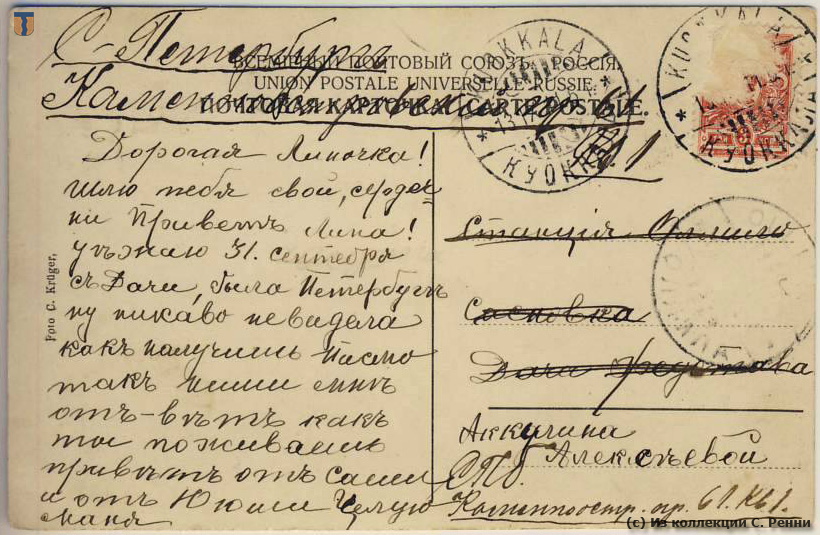 С-Петербургъ
ВСЕМІРНЫЙ ПОЧТОВЫЙ СОЮЗЪ. РОССІЯ.
UNION POSTALE UNIVERSELLE. RUSSIE.
ПОЧТОВАЯ КАРТОЧКА. CARTE POSTALE.
KUOKKALA
КУОККАЛА
KUOKKALA
КУОККАЛА
Дорогая Линочка!
Шлю тебя свой, сердеч
ни Приветъ Лина!
уъзжаю 31. сентебря
съ Дачи, была Петербугъ
ну никаво невидела
какъ получишь Писмо
такъ пиши мнъ
отъ-вътъ какъ
ты поживаешь
привътъ отъ Саши
и отъ Юкши Целую
Маня
Foto C. Krüger,
Станція
Сосновка
Дача
Аккулина
Алексъевой
СПб.
Каменноостр. пр. 61. Кв 1.
(с) Из коллекции С. Ренни